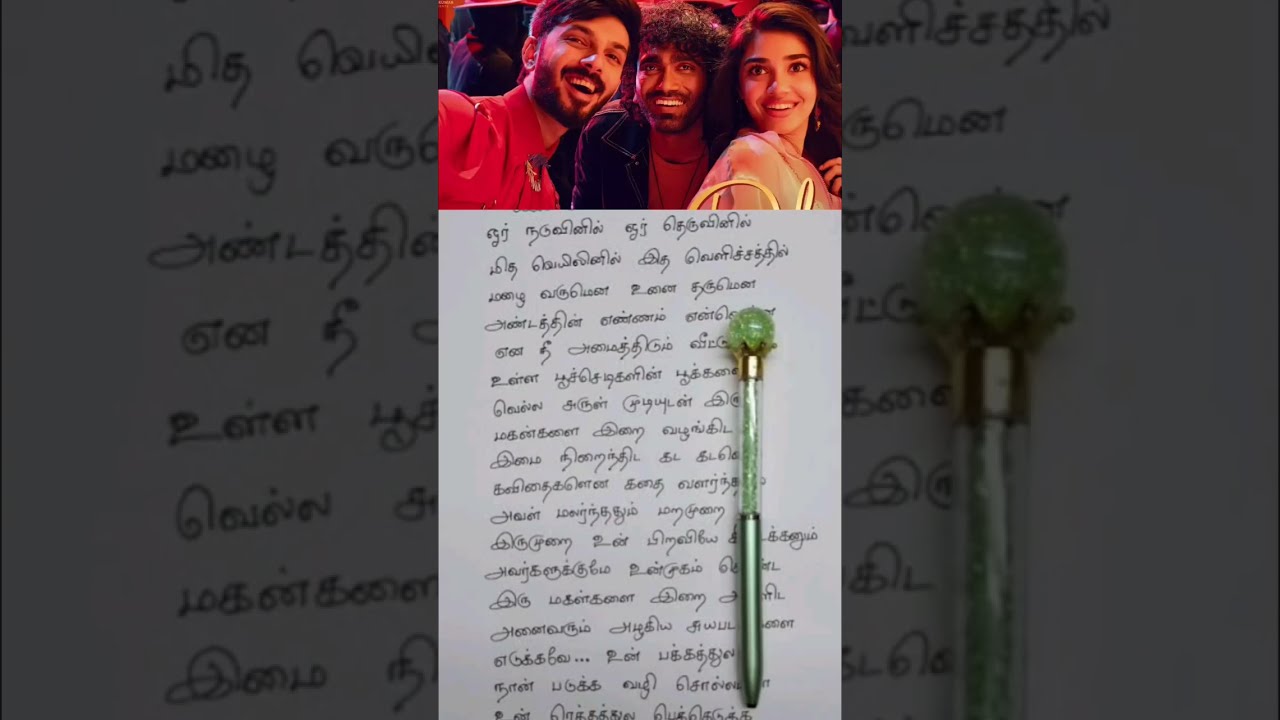 ஓர் நடுவினில் ஓர் தெருவினில்
மித வெயிலினில் இத வெளிச்சத்தில்
மழை வருமென உனை தருமென
அண்டத்தின் எண்ணம்
என நீ அமைத்திடும்
உள்ள பூச்செடிகளின்
வெல்ல அருள் முடியுடன்
மகன்களை இறை வழங்கிட
இமை நிறைந்திட கட
கவிதைகளென கதை
அவள் மலர்ந்ததும் மறுமுறை
இருமுறை உன் பிறவியே
அவர்களுக்குமே உன்முகம்
இரு மகள்களை இறை
அனைவரும் அழகிய
எடுக்கவே... உன் பக்கத்துல
நான் படுக்க வழி
உன் ரெத்தத்துல பெத்தெடுக்க